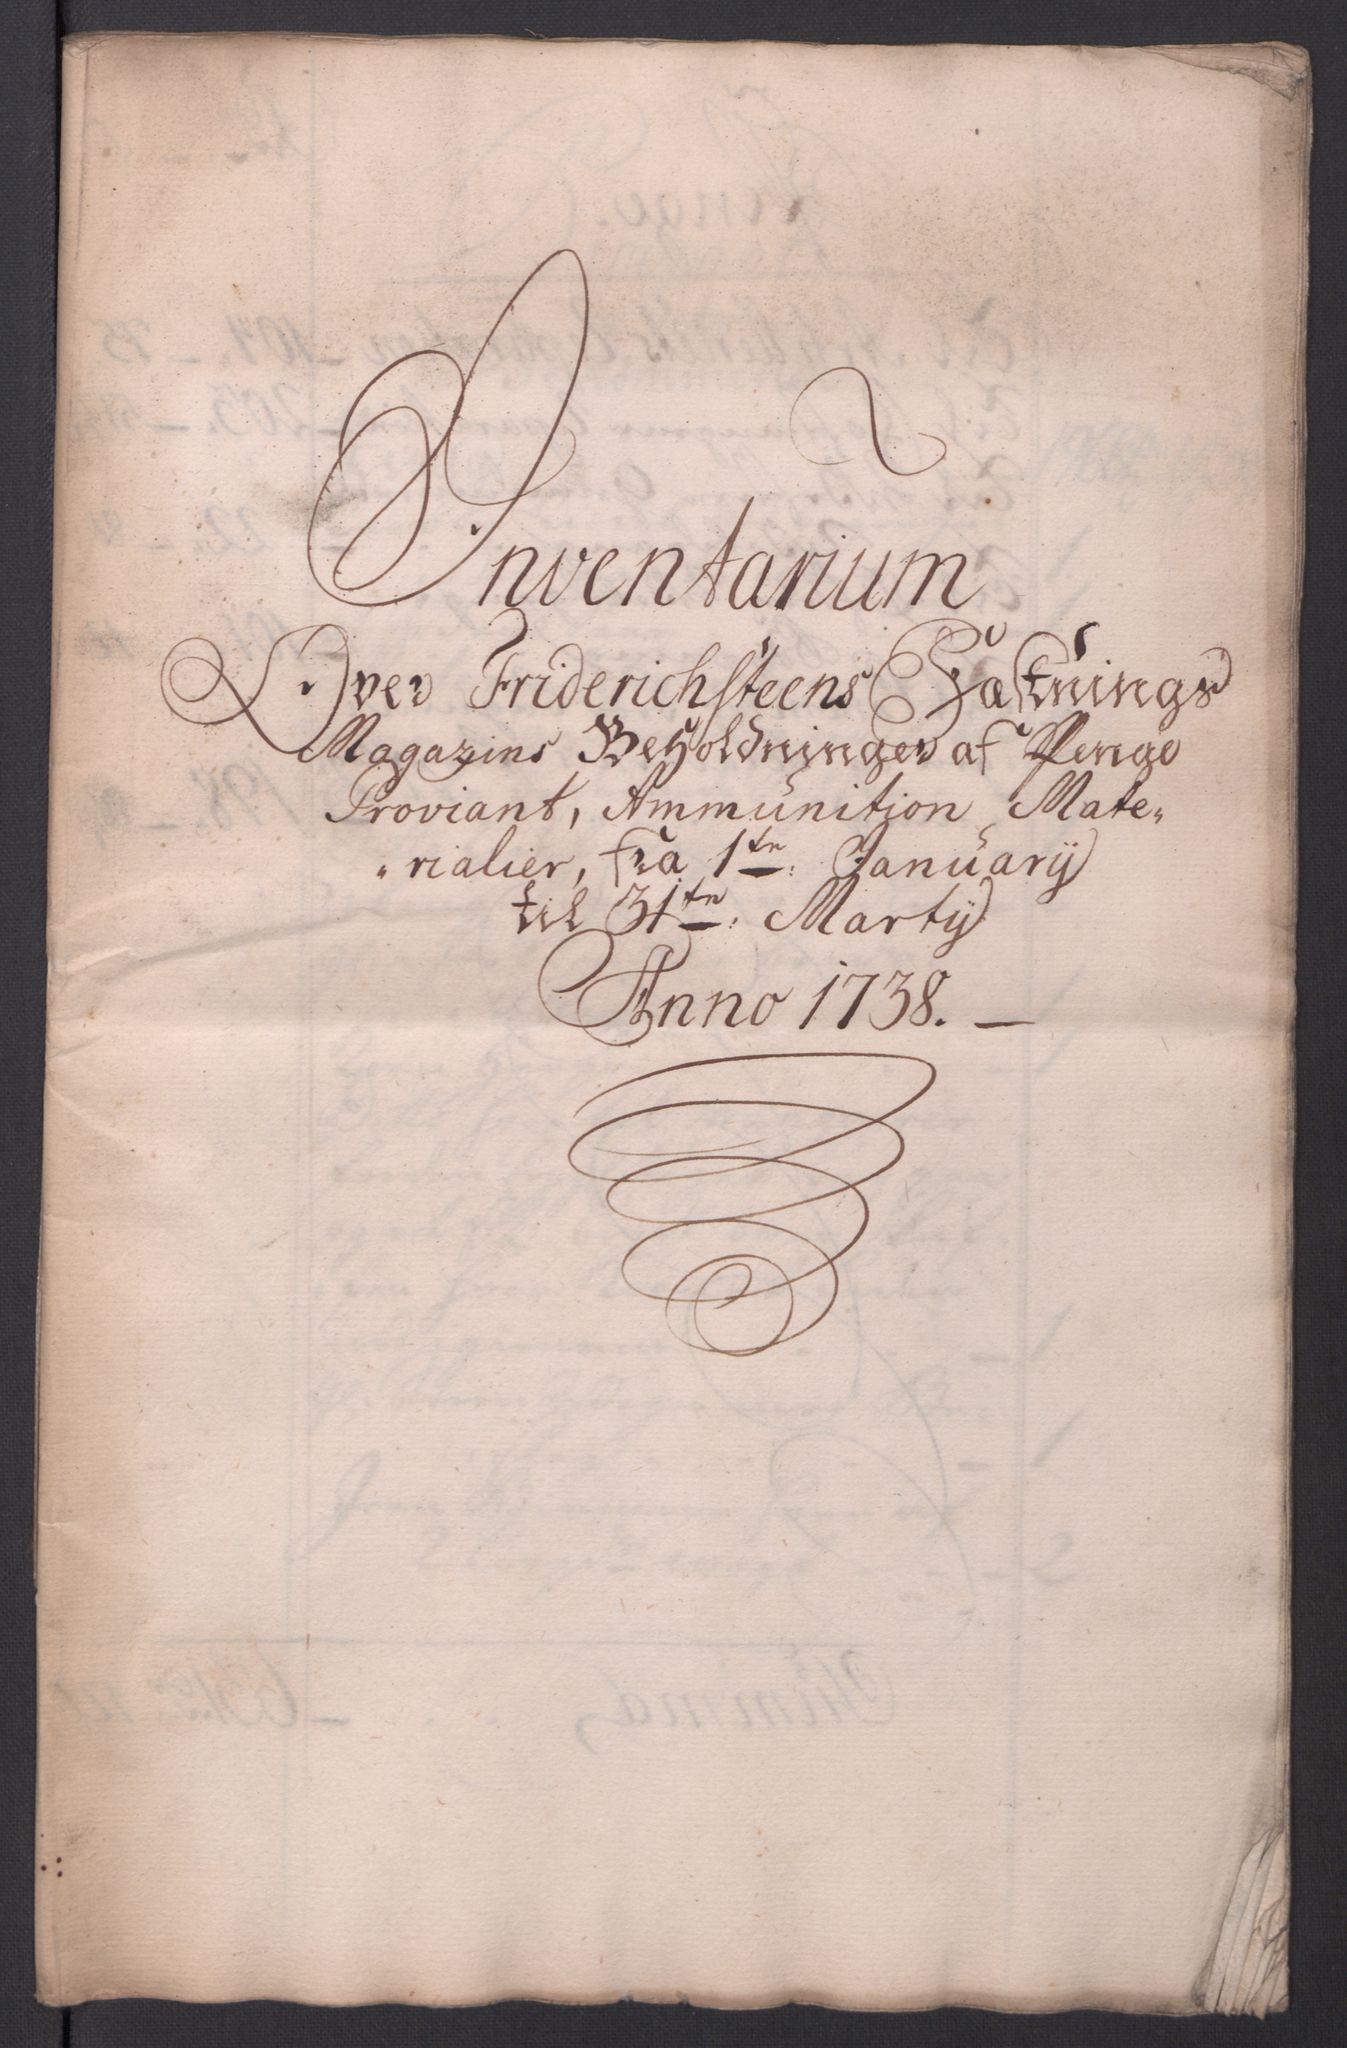 Inventarium
Over Friderichsteens Fæstnings
Magazins Beholdninger af Penge
Proviant, Ammunition Mate„
„rialier, fra 1te: January
til 31te: Martij
Anno 1738. —